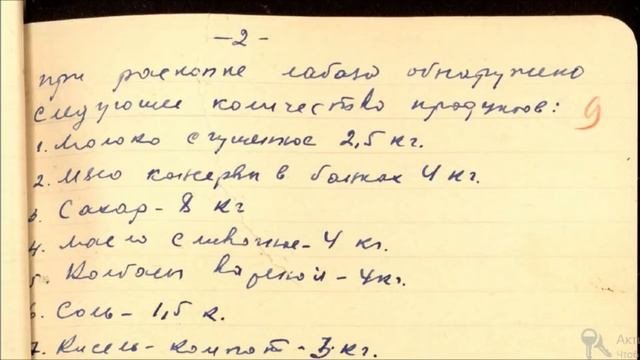 -2-
при раскопке лабаза обнаружено
следующее количество продуктов:
9
1. Молоко сгущенное 2,5 кг.
2. Мясо консервы в банках 4 кг.
3. Сахар - 8 кг
4. масло сливочное - 4 кг.
5. Колбасы вареной - 4 кг.
6. Соль - 1,5 к.
7. Кисель-компот - 3 кг.